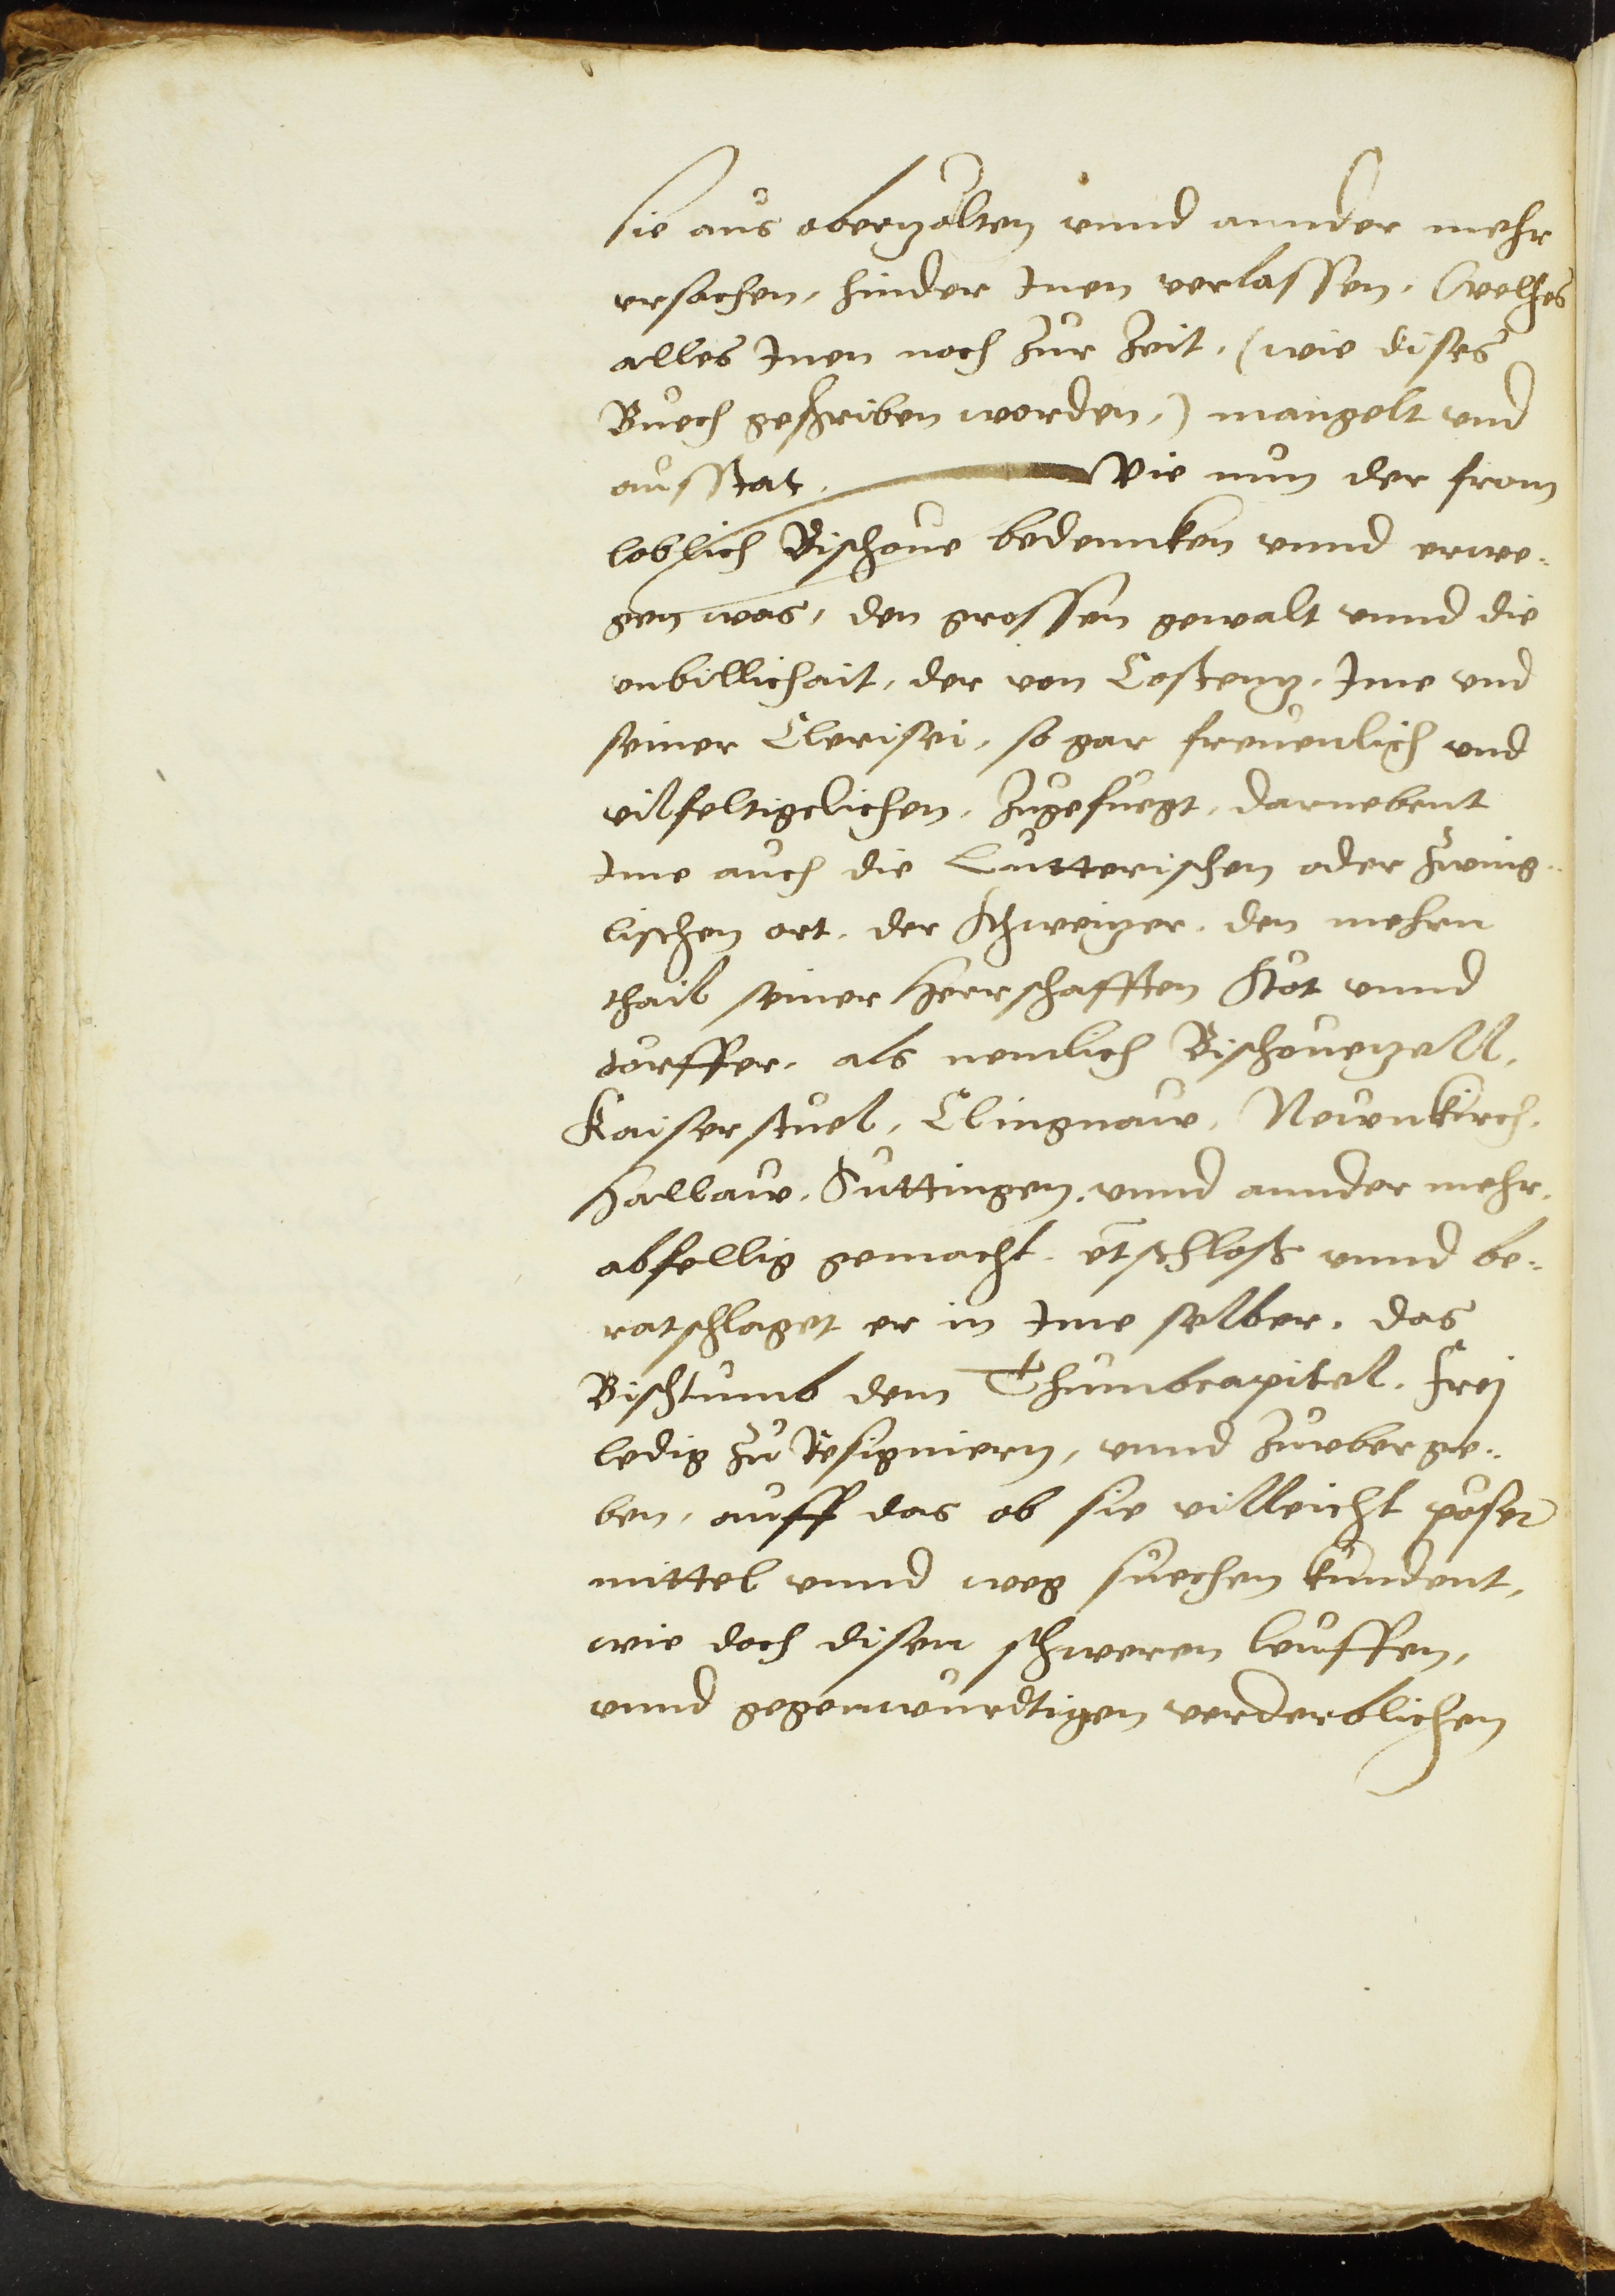 sie aus oberzolten vnnd annder mehr
vrsachen, hinder Inen verlassen, (welches
alles Inen noch zur Zeit, (wie dises
Buech geschriben worden,) mangelt vnd
ausstat. Wie nun der from
loblich Bischoue bedenncken vnnd erwe-
gen was, den grossen gewalt vnnd die
vnbillichait, der von Costentz, Ime vnd
seiner Clerisei, so gar freuenlich vnd
vilfeltigclichen, zugefuegt, darnebent
Ime auch die Lutterischen oder Zwing-
lischen ort, der Schweizer, den mehrn
thail seiner Herrschafften Stot vnnd
torffer, als nemlich Bischouezell,
Kaiserstuel, Clingnaw, Newnkirch,
Hallaw, Guttingen, vnnd annder mehr,
abfellig gemacht. ētschloss vnnd be-
ratschlaget er in Ime selber, das
Bischtumb dem Thumbcapitel, frej
ledig zu Resigniern, vnnd zuvberge-
ben, auff das ob sie villeicht posser
mittel vnnd weg suechen kundent,
wie doch disen schweren leuffen,
vnnd gegenwurdtigen verderblichen